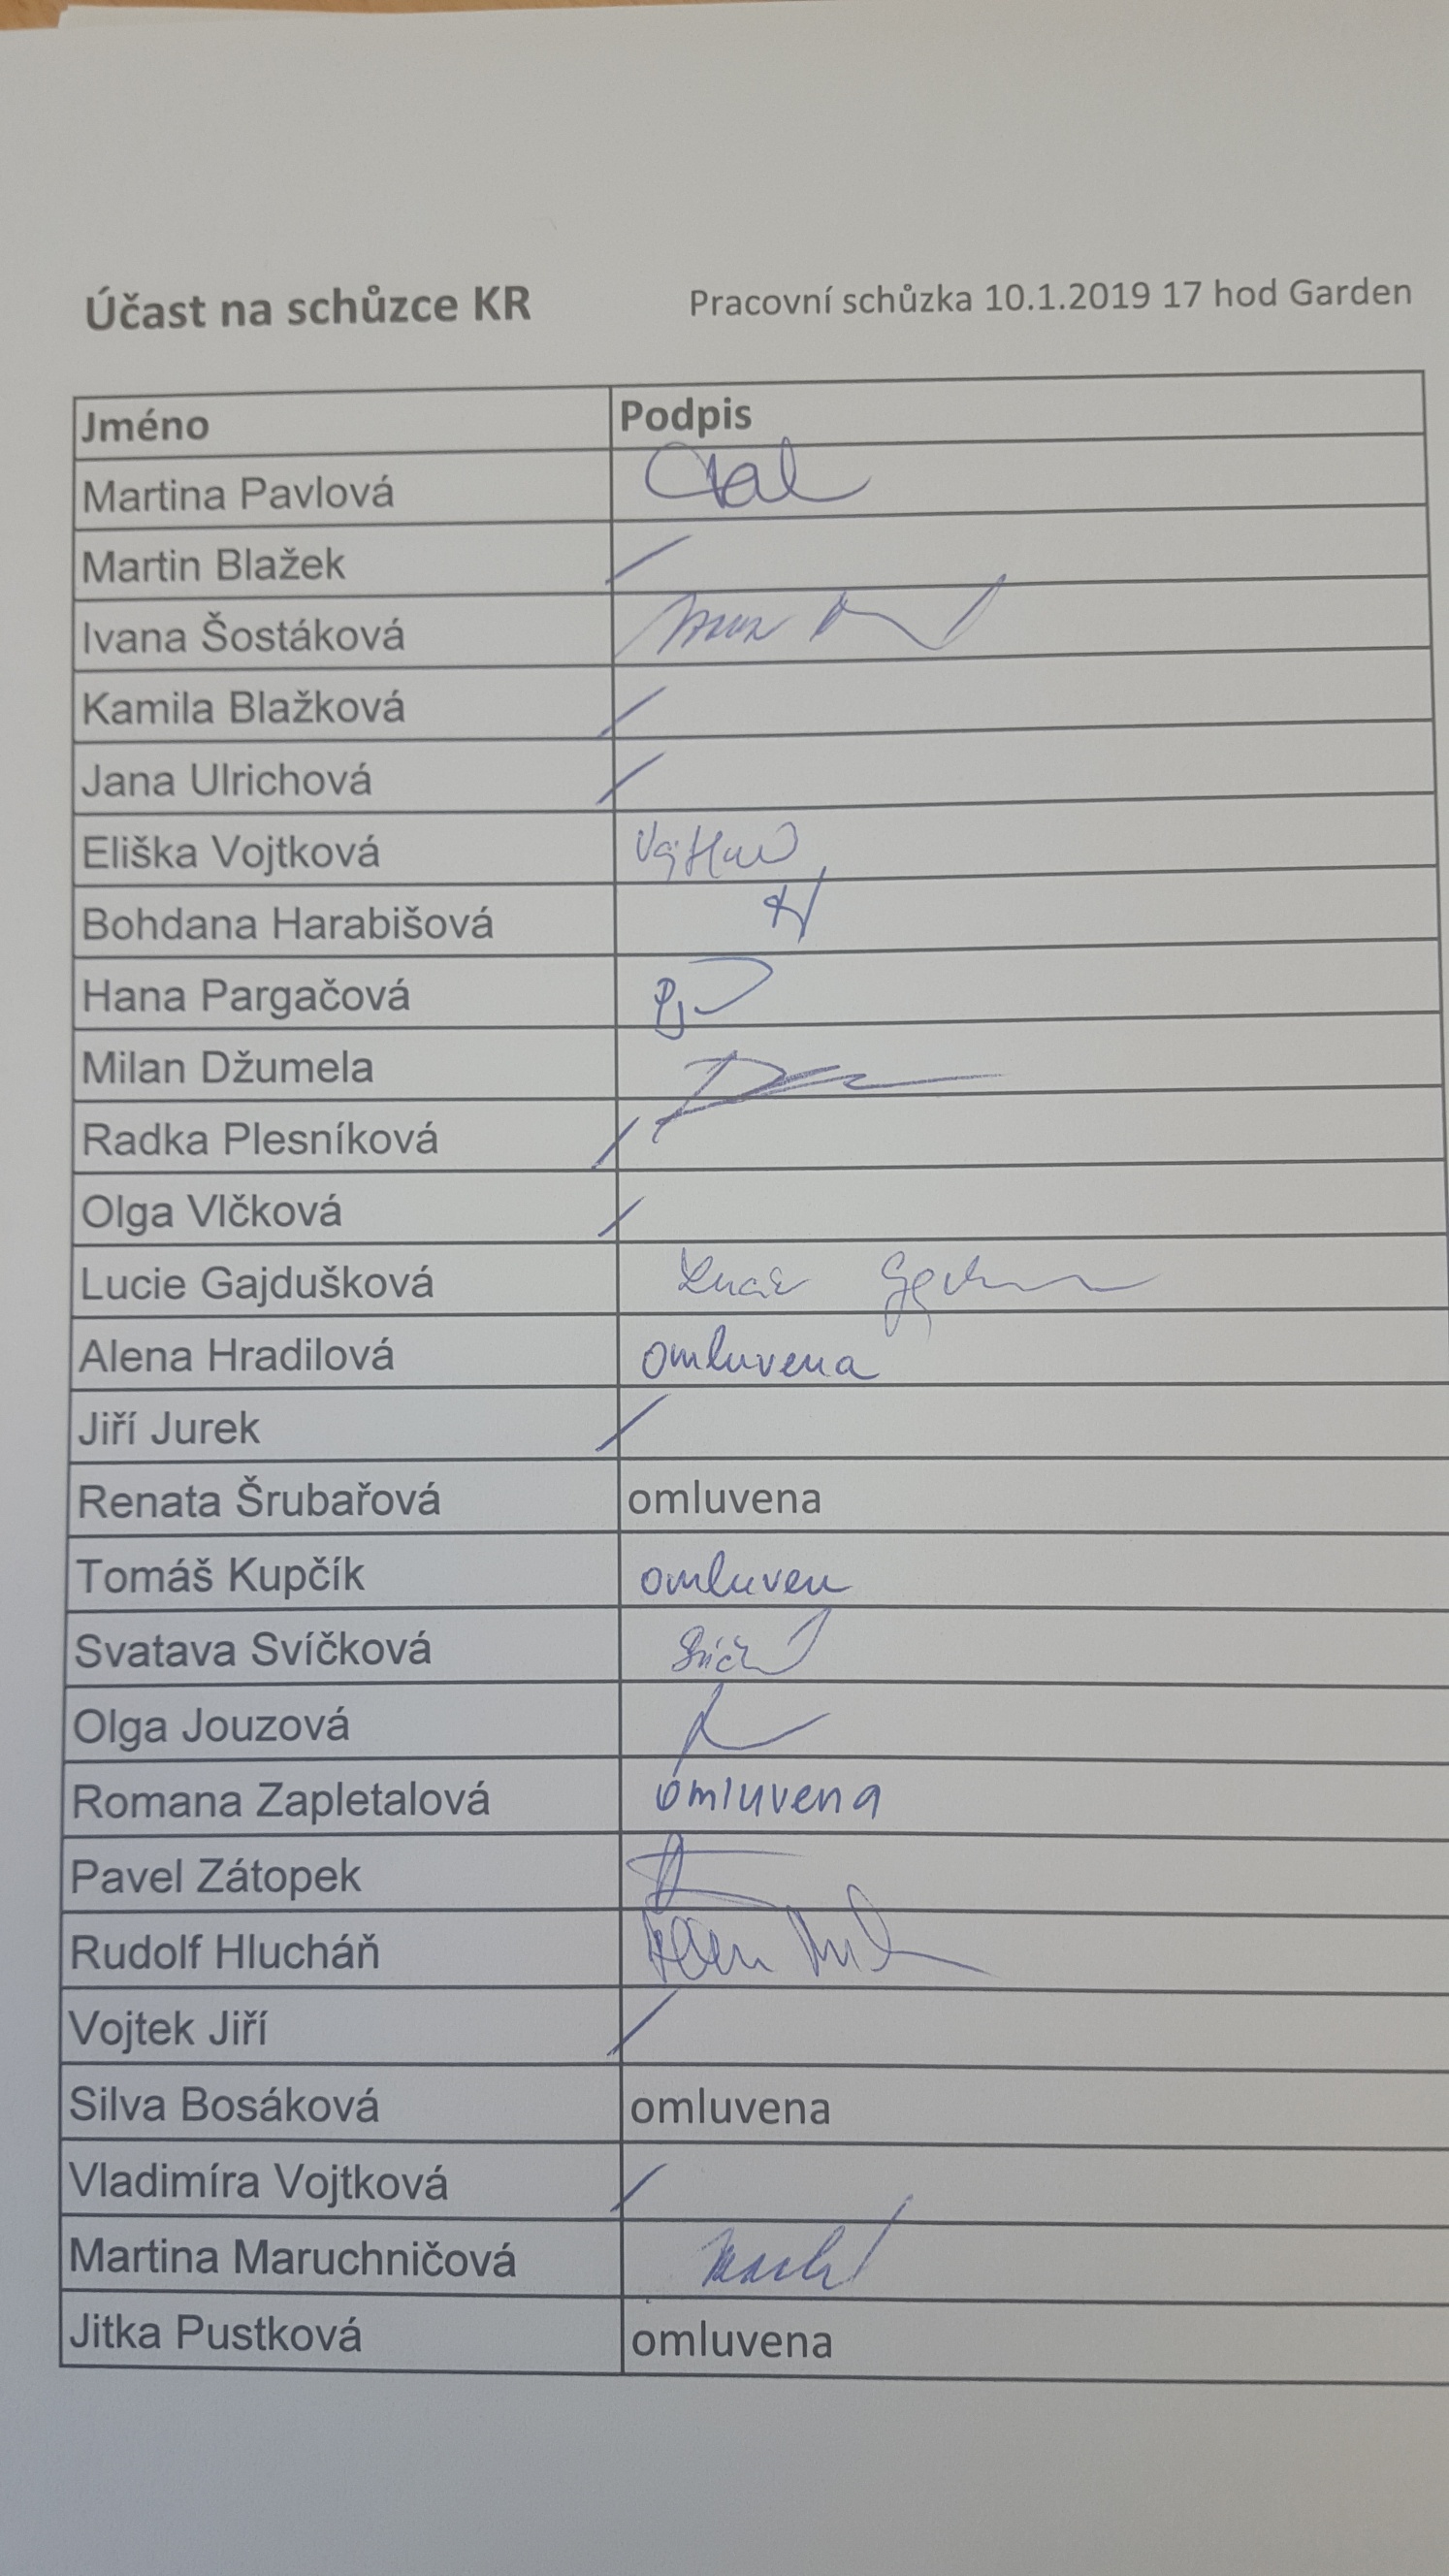 Účast na schůzce KR Pracovní schůzka 10.1.2019 17 hod Garden
Jméno Podpis
Martina Pavlová
Martin Blažek /
Ivana Šostáková
Kamila Blažková /
Jana Ulrichová /
Eliška Vojtková
Bohdana Harabišová
Hana Pargačová
Milan Džumela
Radka Plesníková /
Olga Vlčková /
Lucie Gajdušková
Alena Hradilová omluvena
Jiří Jurek /
Renata Šrubařová omluvena
Tomáš Kupčík omluven
Svatava Svíčková
Olga Jouzová
Romana Zapletalová omluvena
Pavel Zátopek
Rudolf Hlucháň
Vojtek Jiří /
Silva Bosáková omluvena
Vladimíra Vojtková /
Martina Maruchničová
Jitka Pustková omluvena